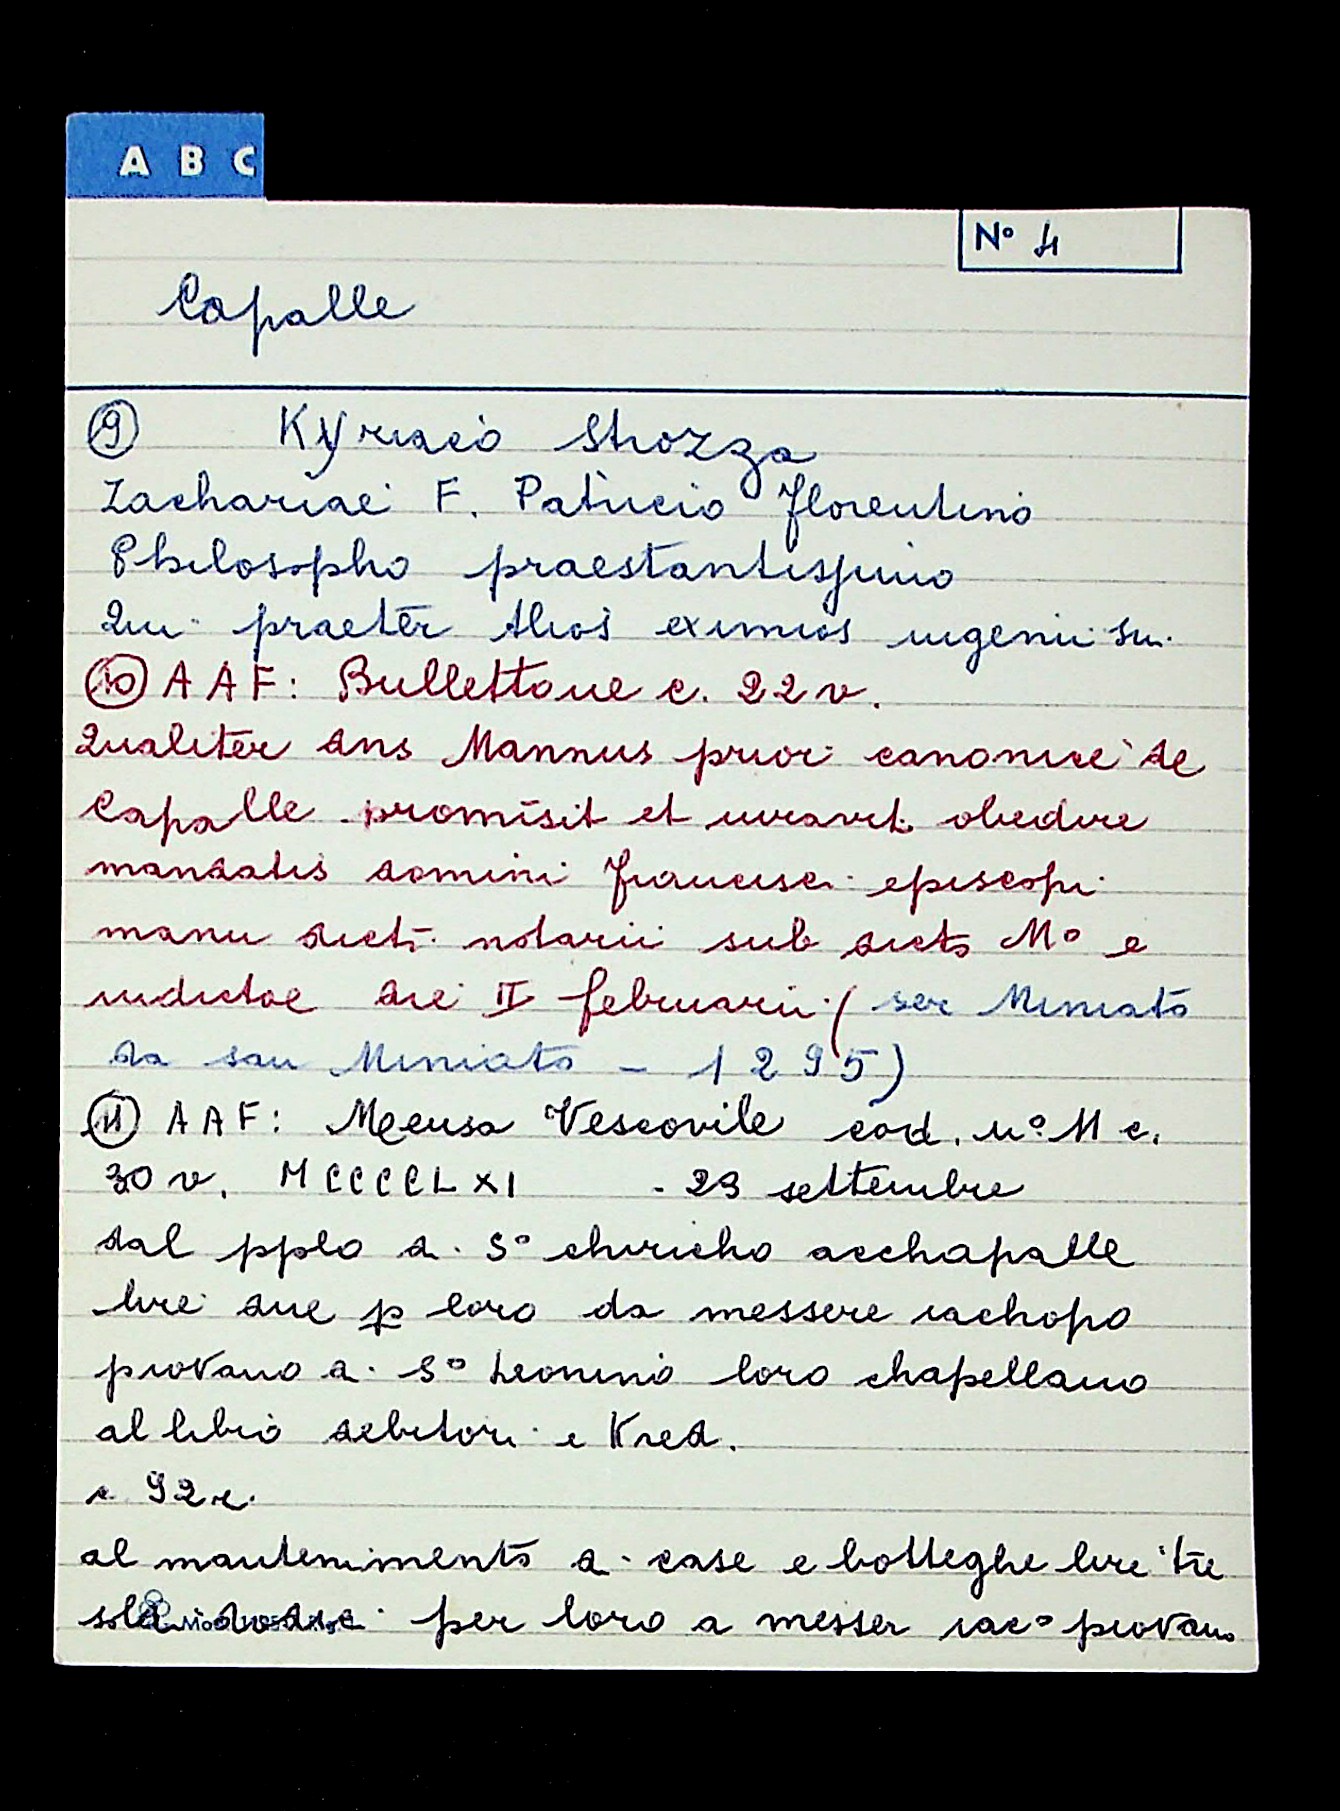 A B C
N° 4
Capalle
9 Kyriaco Strozza
Zachariae F. Patricio Florentino
Philosopho praestantissimo
Qui praeter Alios eximios ingenii sui
10 AAF: Bullettone c. 22 v.
Qualiter dns Mannus prior canonice de
Capalle promisit et iuravit obedire
mandatis domini francisci episcopi
manu dicti notarii sub dicto M° e
indictoe die II februarii (ser Miniato
da san Miniato - 1295)
11 AAF: Mensa Vescovile cod. n° 11 c.
30 v. MCCCCLXI - 23 settembre
dal pplo d. S° chiricho acchapalle
lire due p loro da messere iachopo
piovano d. S° Leonino loro chapellano
al libro debitori e Kred.
c 92 r.
al mantenimento d. case e botteghe lire tre
per loro a messer iac° piovano